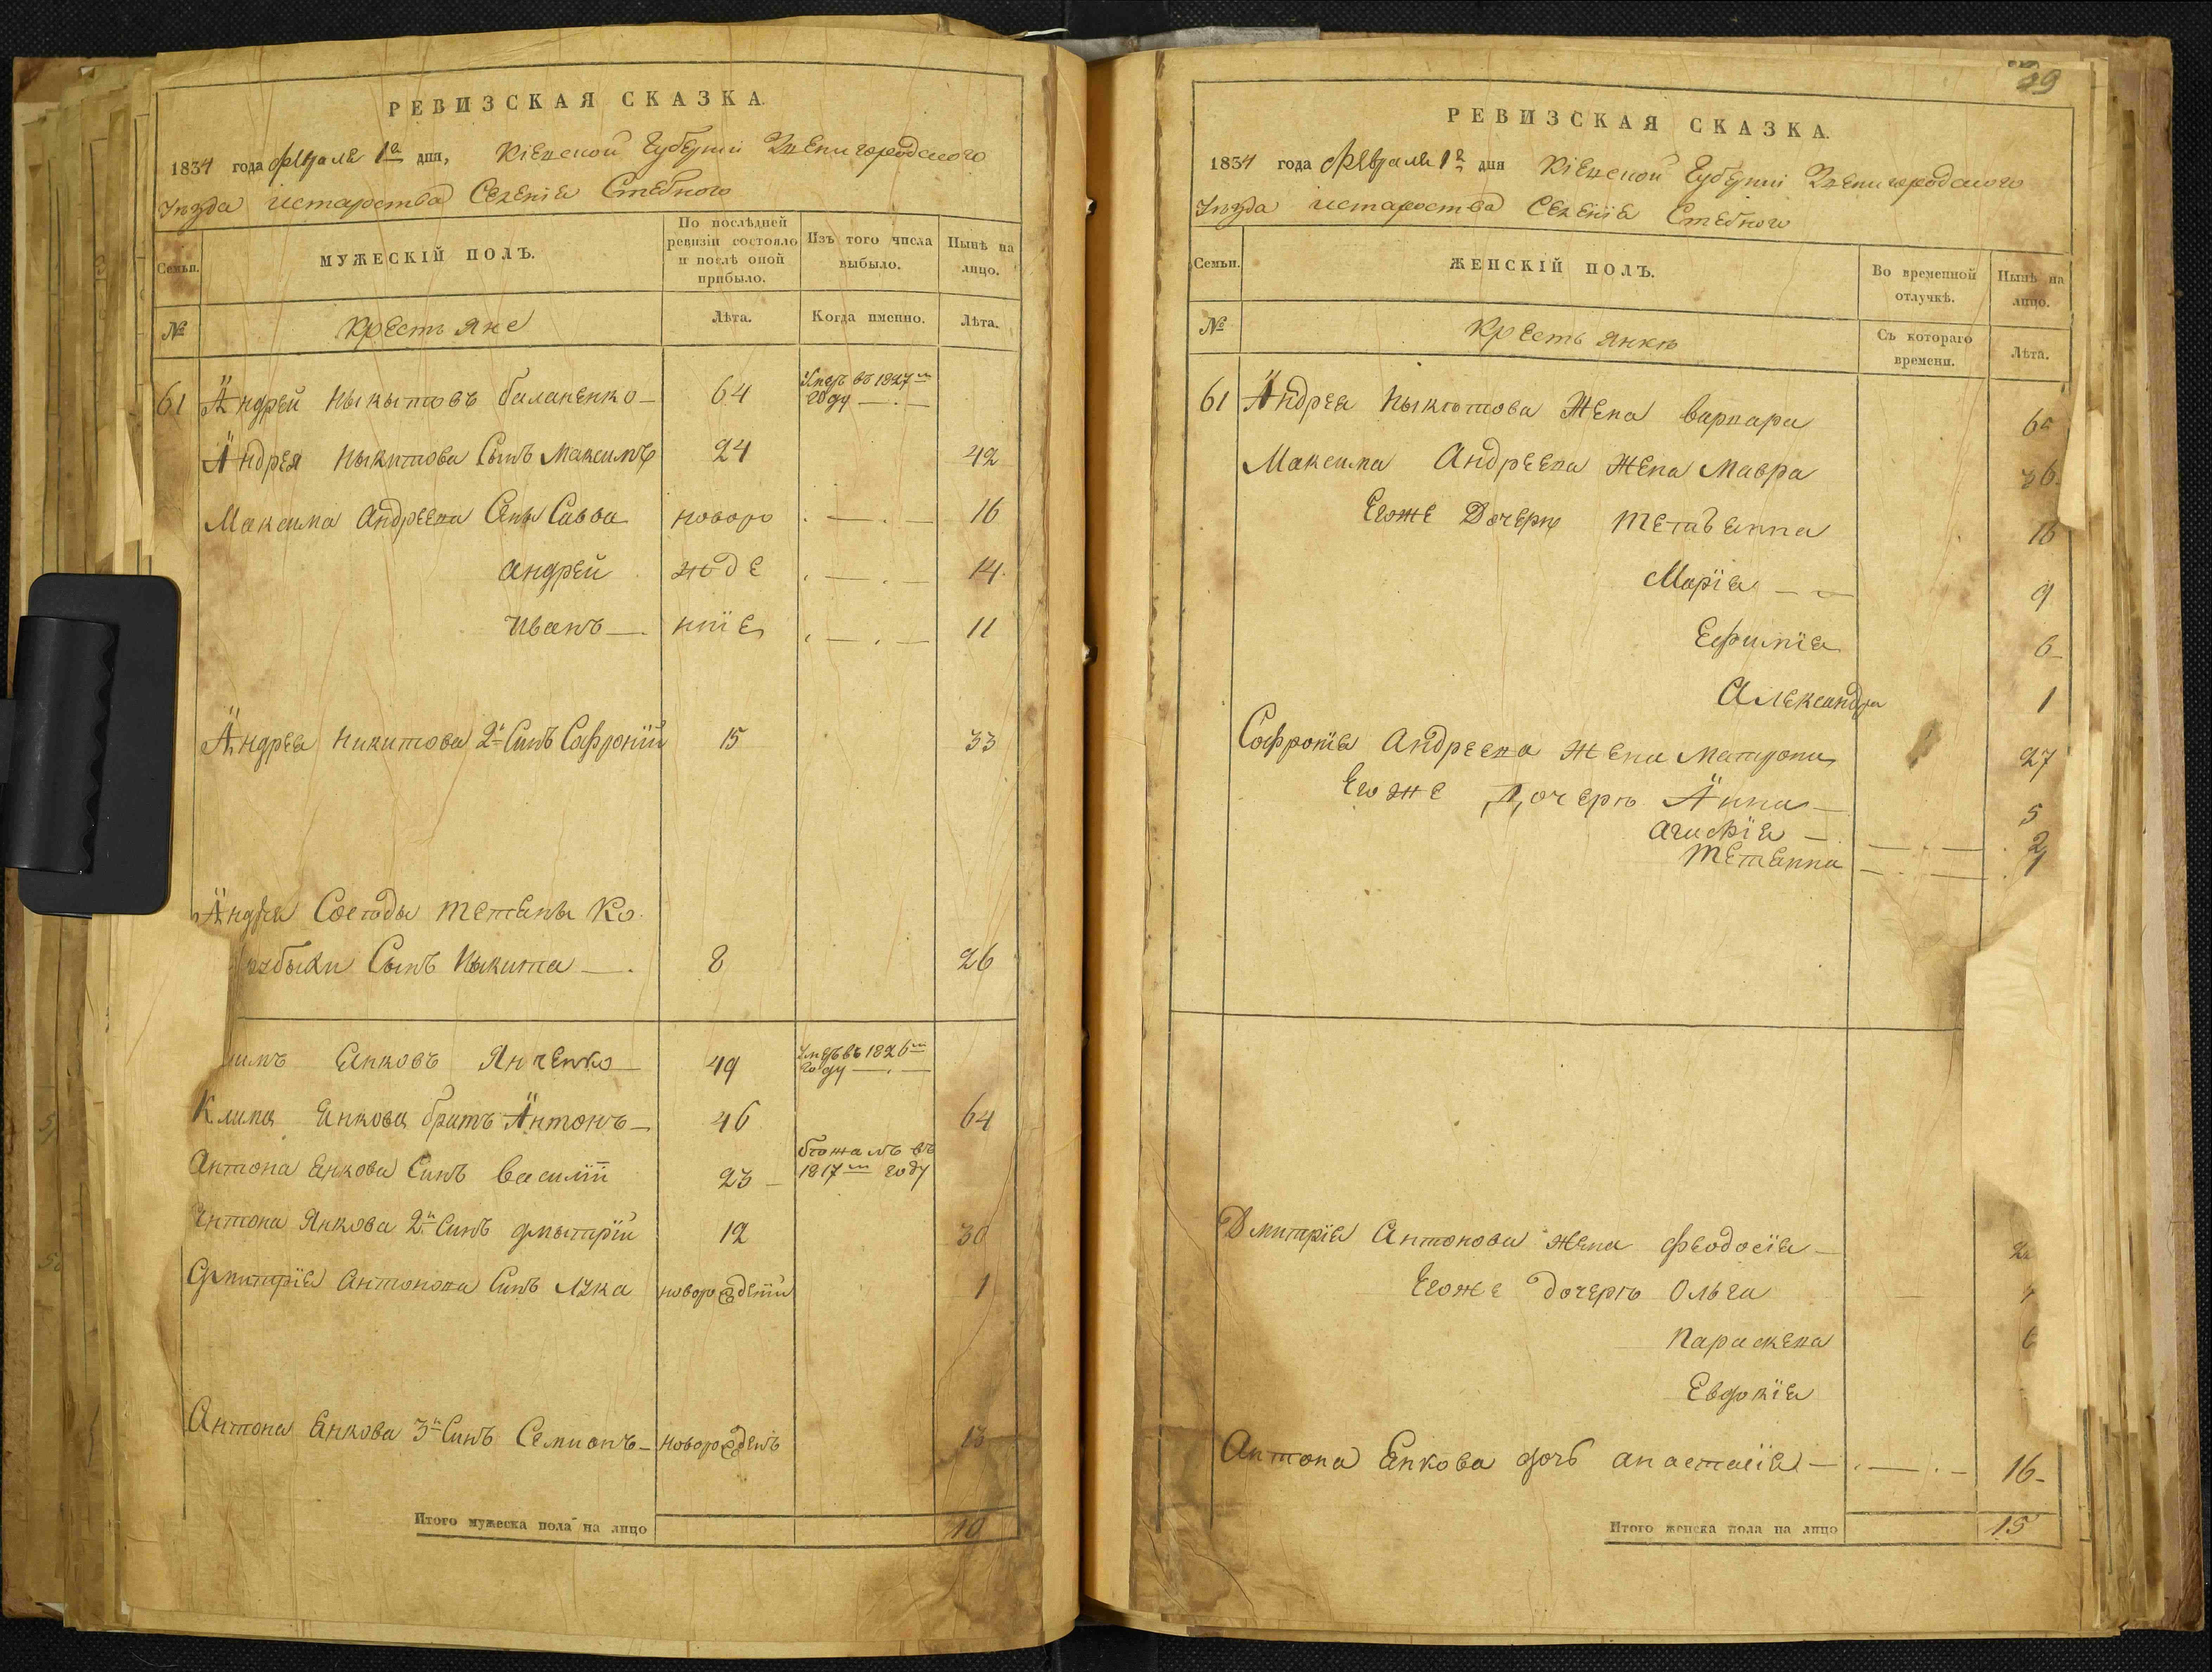 РЕВИЗСКАЯ СКАЗКА.
1834 года февраля 1го дня, Кіевской Губерніи Звенигородского
Уѣзда и староства Селенія Стебного
Семьи. МУЖЕСКІЙ ПОЛЪ. По послѣдней ревизіи состояло и послѣ оной прибыло. Изъ того числа выбыло. Нынѣ на лицо.
№ Крестьяне Лѣта. Когда именно. Лѣта.
61 Андрей Ныкытовъ 64 Умеръ въ 1827м году
Андрея Ныкитова Сынъ Максимъ 24 42
Максима Андреева Сины Савва новоро 16
Андрей жде 14
Иванъ нніе 11
Андрея Никитова 2й Синъ Софроній 15 33
Андрея Сосѣды
Сынъ Ныкита 8 26
Янковъ Янченко 49 Умеръ въ 1826м году
Клима Янкова братъ Антонъ 46 64
Антона Янкова Синъ Василій 23 бѣжалъ въ 1817м году
Антона Янкова 2й Синъ Дмытрій 12 30
Дмитрія Антонова Синъ Лука 1
Антона Янкова 3й Синъ Семионъ 13
Итого мужеска пола на лицо 10
РЕВИЗСКАЯ СКАЗКА.
1834 года февраля 1го дня Кіевской Губерніи Звенигородского
Уѣзда и староства Селенія Стебного
Семьи. ЖЕНСКІЙ ПОЛЪ. Во временной отлучкѣ. Нынѣ на лицо.
№ Крестьянкѣ Съ котораго времени. Лѣта.
61 Андрея Ныкитова Жена Варвара
Максима Андреева Жена Мавра 36
Егоже Дочерѣ 16
Марія 9
Ефимія 6
Александра 1
Софронія Андреева Жена Матрона 27
Егоже Дочерѣ Анна 5
Агафія 2
1
Дмитрія Антонова Жена Феодосія
Егоже дочерѣ Ольга
Параскева 6
Евдокія
Антона Янкова дочь Анастасія 16
Итого женска пола на лицо 15